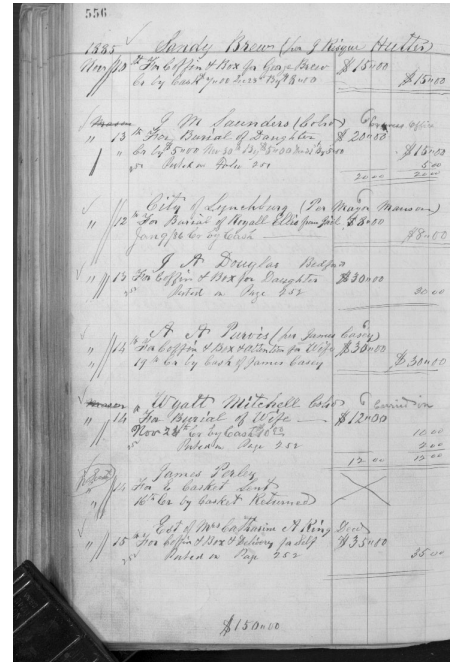 556
1885 Sandy Brew (per J Risque Hutter)
Nov 10th For Coffin & Box for George Brew $15.00
Cr by Cash $15.00
J M Saunders (Cold)
" 13th For Burial of Daughter $20.00
$15.00
5.00
Posted on Folio 252 20 00 20 00
City of Lynchburg (Per Mayor Manson)
" 12th For Burial of Royall Ellis from Jail $8.00
Cr by Cash $8.00
J A Douglas Bedford
" 13 For Coffin & Box for Daughter $30.00
Posted on Page 252 30 00
A A Purvis (per James Casey)
" 14th For Coffin & Box & Attention for Wife $30.00
19th Cr by Cash of James Casey $30.00
Wyatt Mitchell Cold
" 14th For Burial of Wife $12.00
Nov 24th Cr by Cash 10 00 10 00
Posted on Page 252 2 00
12 00 12 00
James
" 14 For Casket Sent
16th Cr by Casket Returned
Est of Mrs Catharine A King
" 15th For Coffin & Box & Delivery for Self $35.00
Posted on Page 252 35 00
$150.00